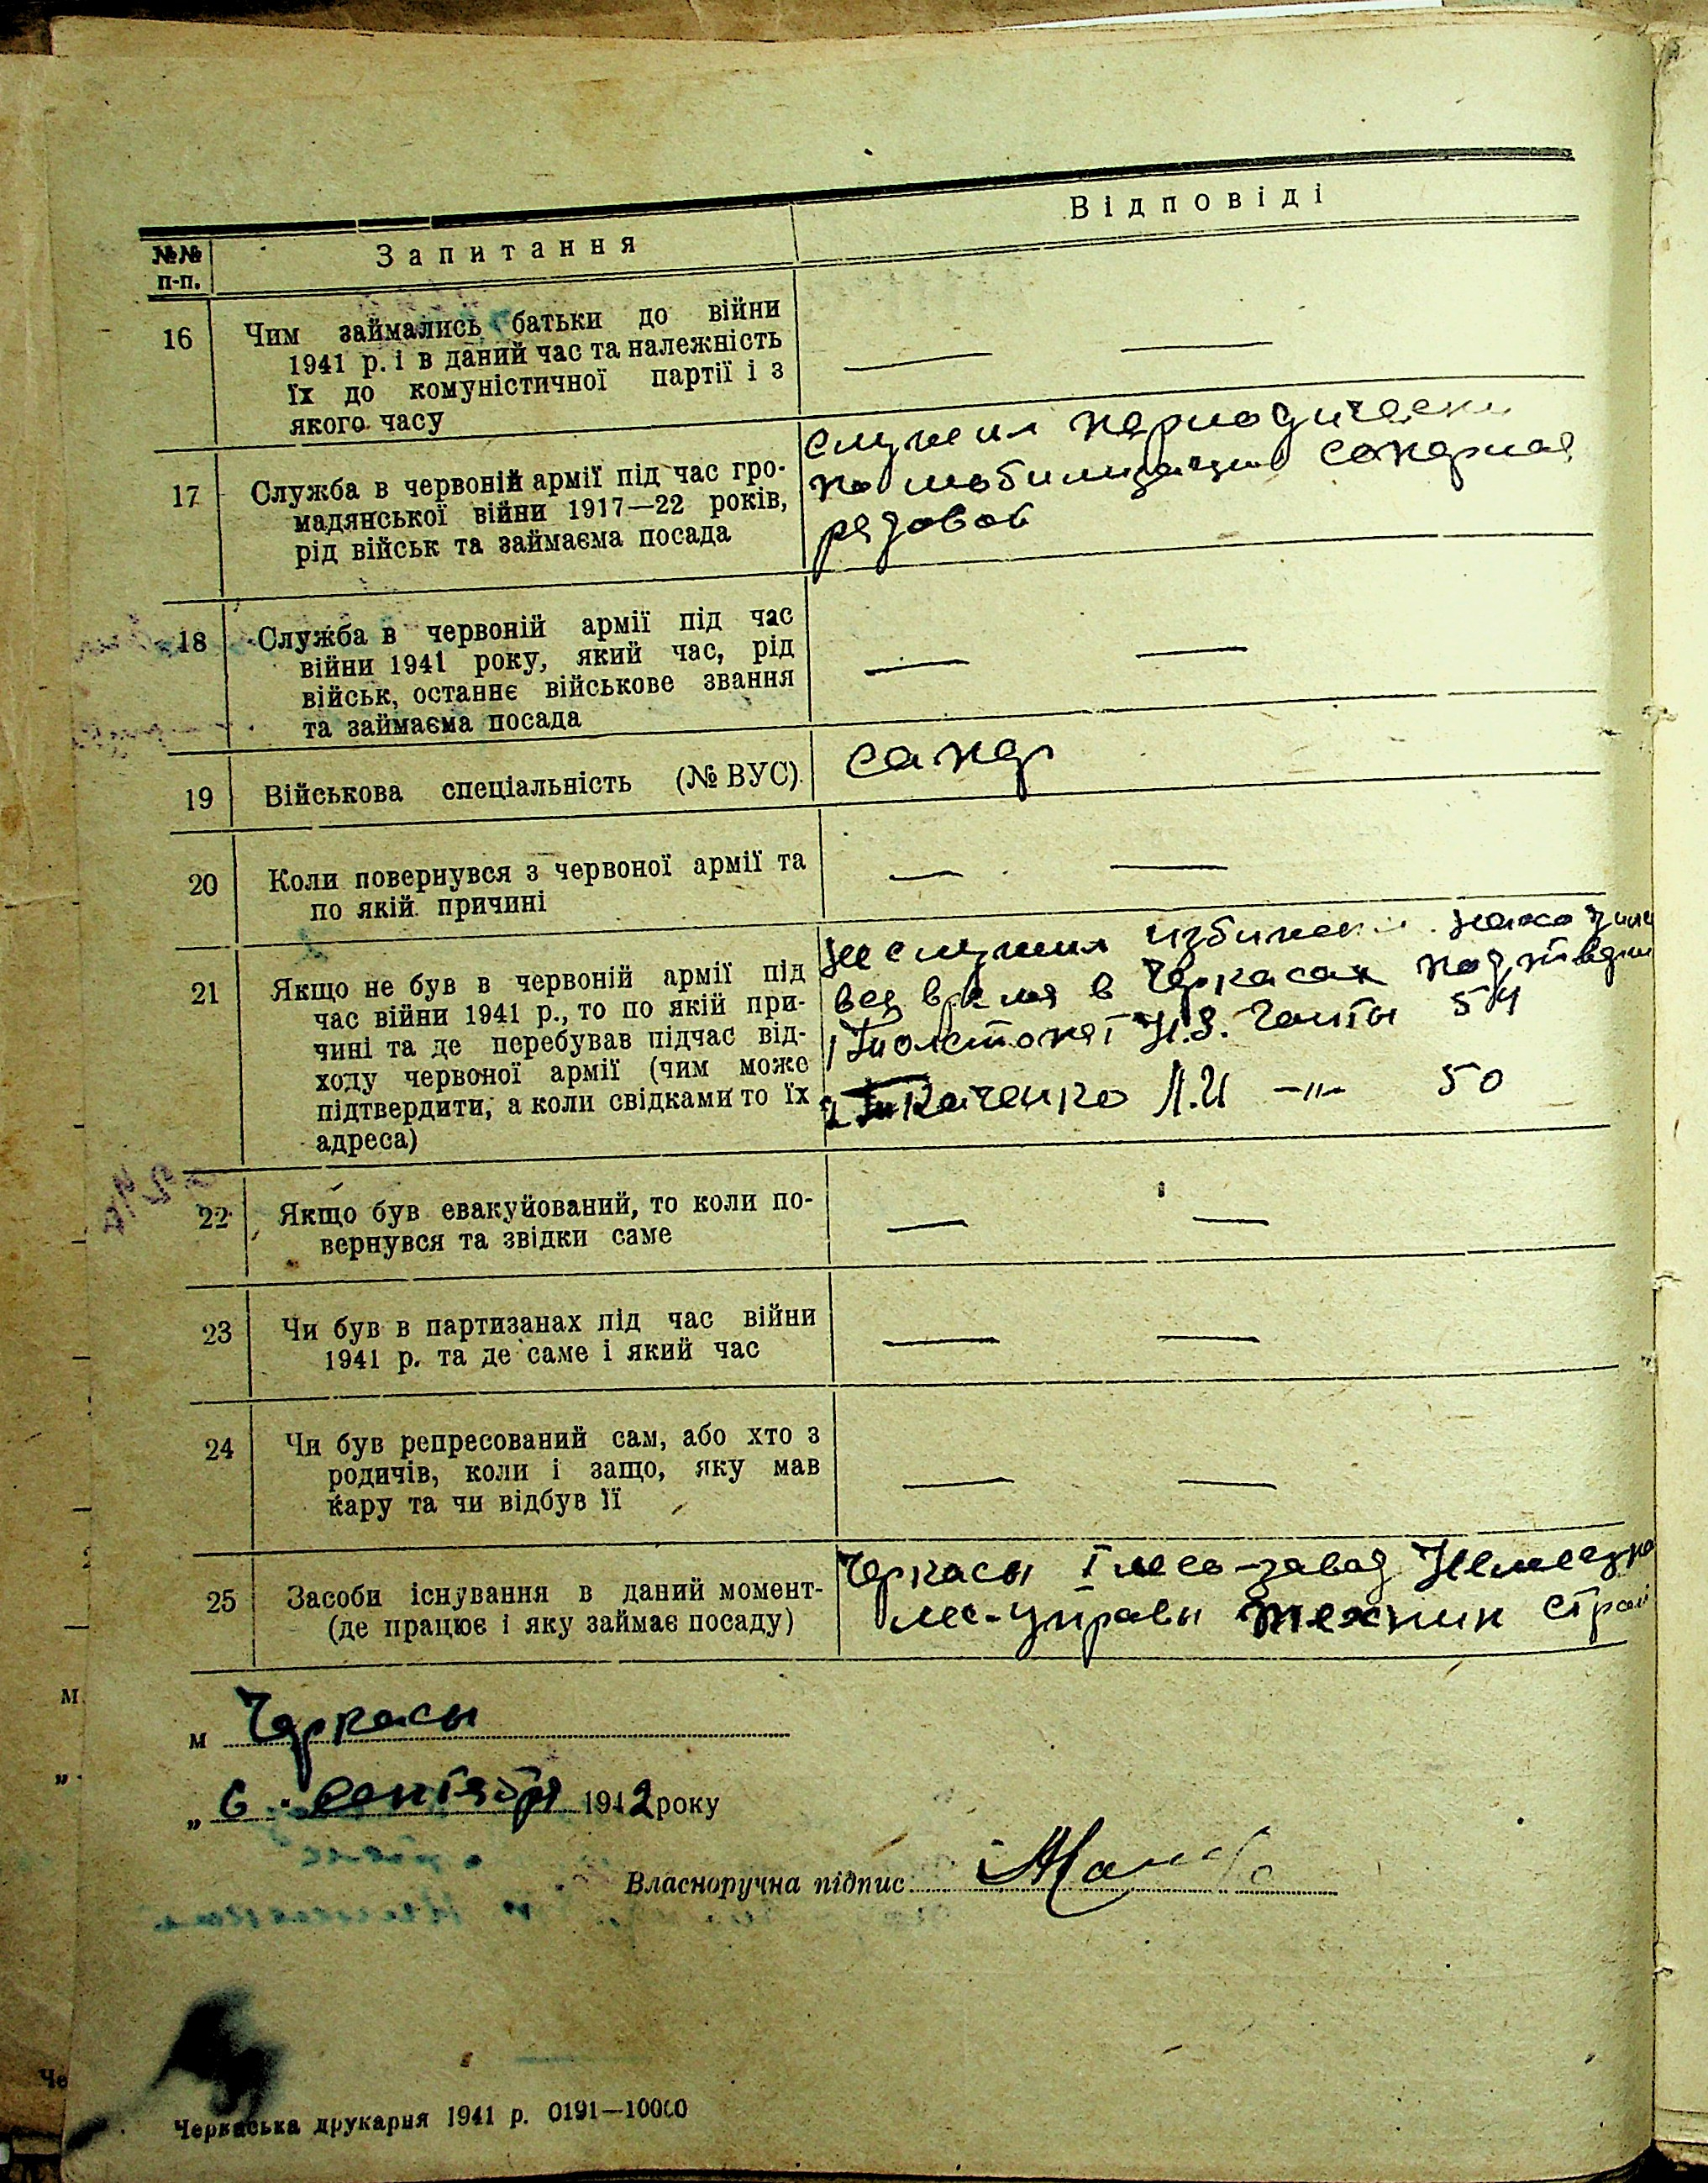 Відповіді
№№ п-п.
Запитання
16
Чим займались батьки до війни
1941 р. і в даний час та належність
їх до комуністичної партії і з
якого часу
— —
17
Служба в червоній армії під час гро-
мадянської війни 1917—22 років,
рід військ та займаєма посада
служил периодически
по мобилизации саперная
рядовой
18
Служба в червоній армії під час
війни 1941 року, який час, рід
військ, останнє військове звання
та займаєма посада
— —
19
Військова спеціальність (№ ВУС)
сапер
20
Коли повернувся з червоної армії та
по якій причині
— —
21
Якщо не був в червоній армії під
час війни 1941 р., то по якій при-
чині та де перебував підчас від-
ходу червоної армії (чим може
підтвердити, а коли свідками то їх
адреса)
не служил
время в Черкасах
1 Гонты 54
2 Ткаченко Л.И —„— 50
22
Якщо був евакуйований, то коли по-
вернувся та звідки саме
— —
23
Чи був в партизанах під час війни
1941 р. та де саме і який час
— —
24
Чи був репресований сам, або хто з
родичів, коли і защо, яку мав
кару та чи відбув її
— —
25
Засоби існування в даний момент-
(де працює і яку займає посаду)
Черкасы I лесо-завод
лес-управы техник
м Черкасы
„ 6 . сентября 1942 року
Власноручна підпис
Черкаська друкарня 1941 р. 0191—10000